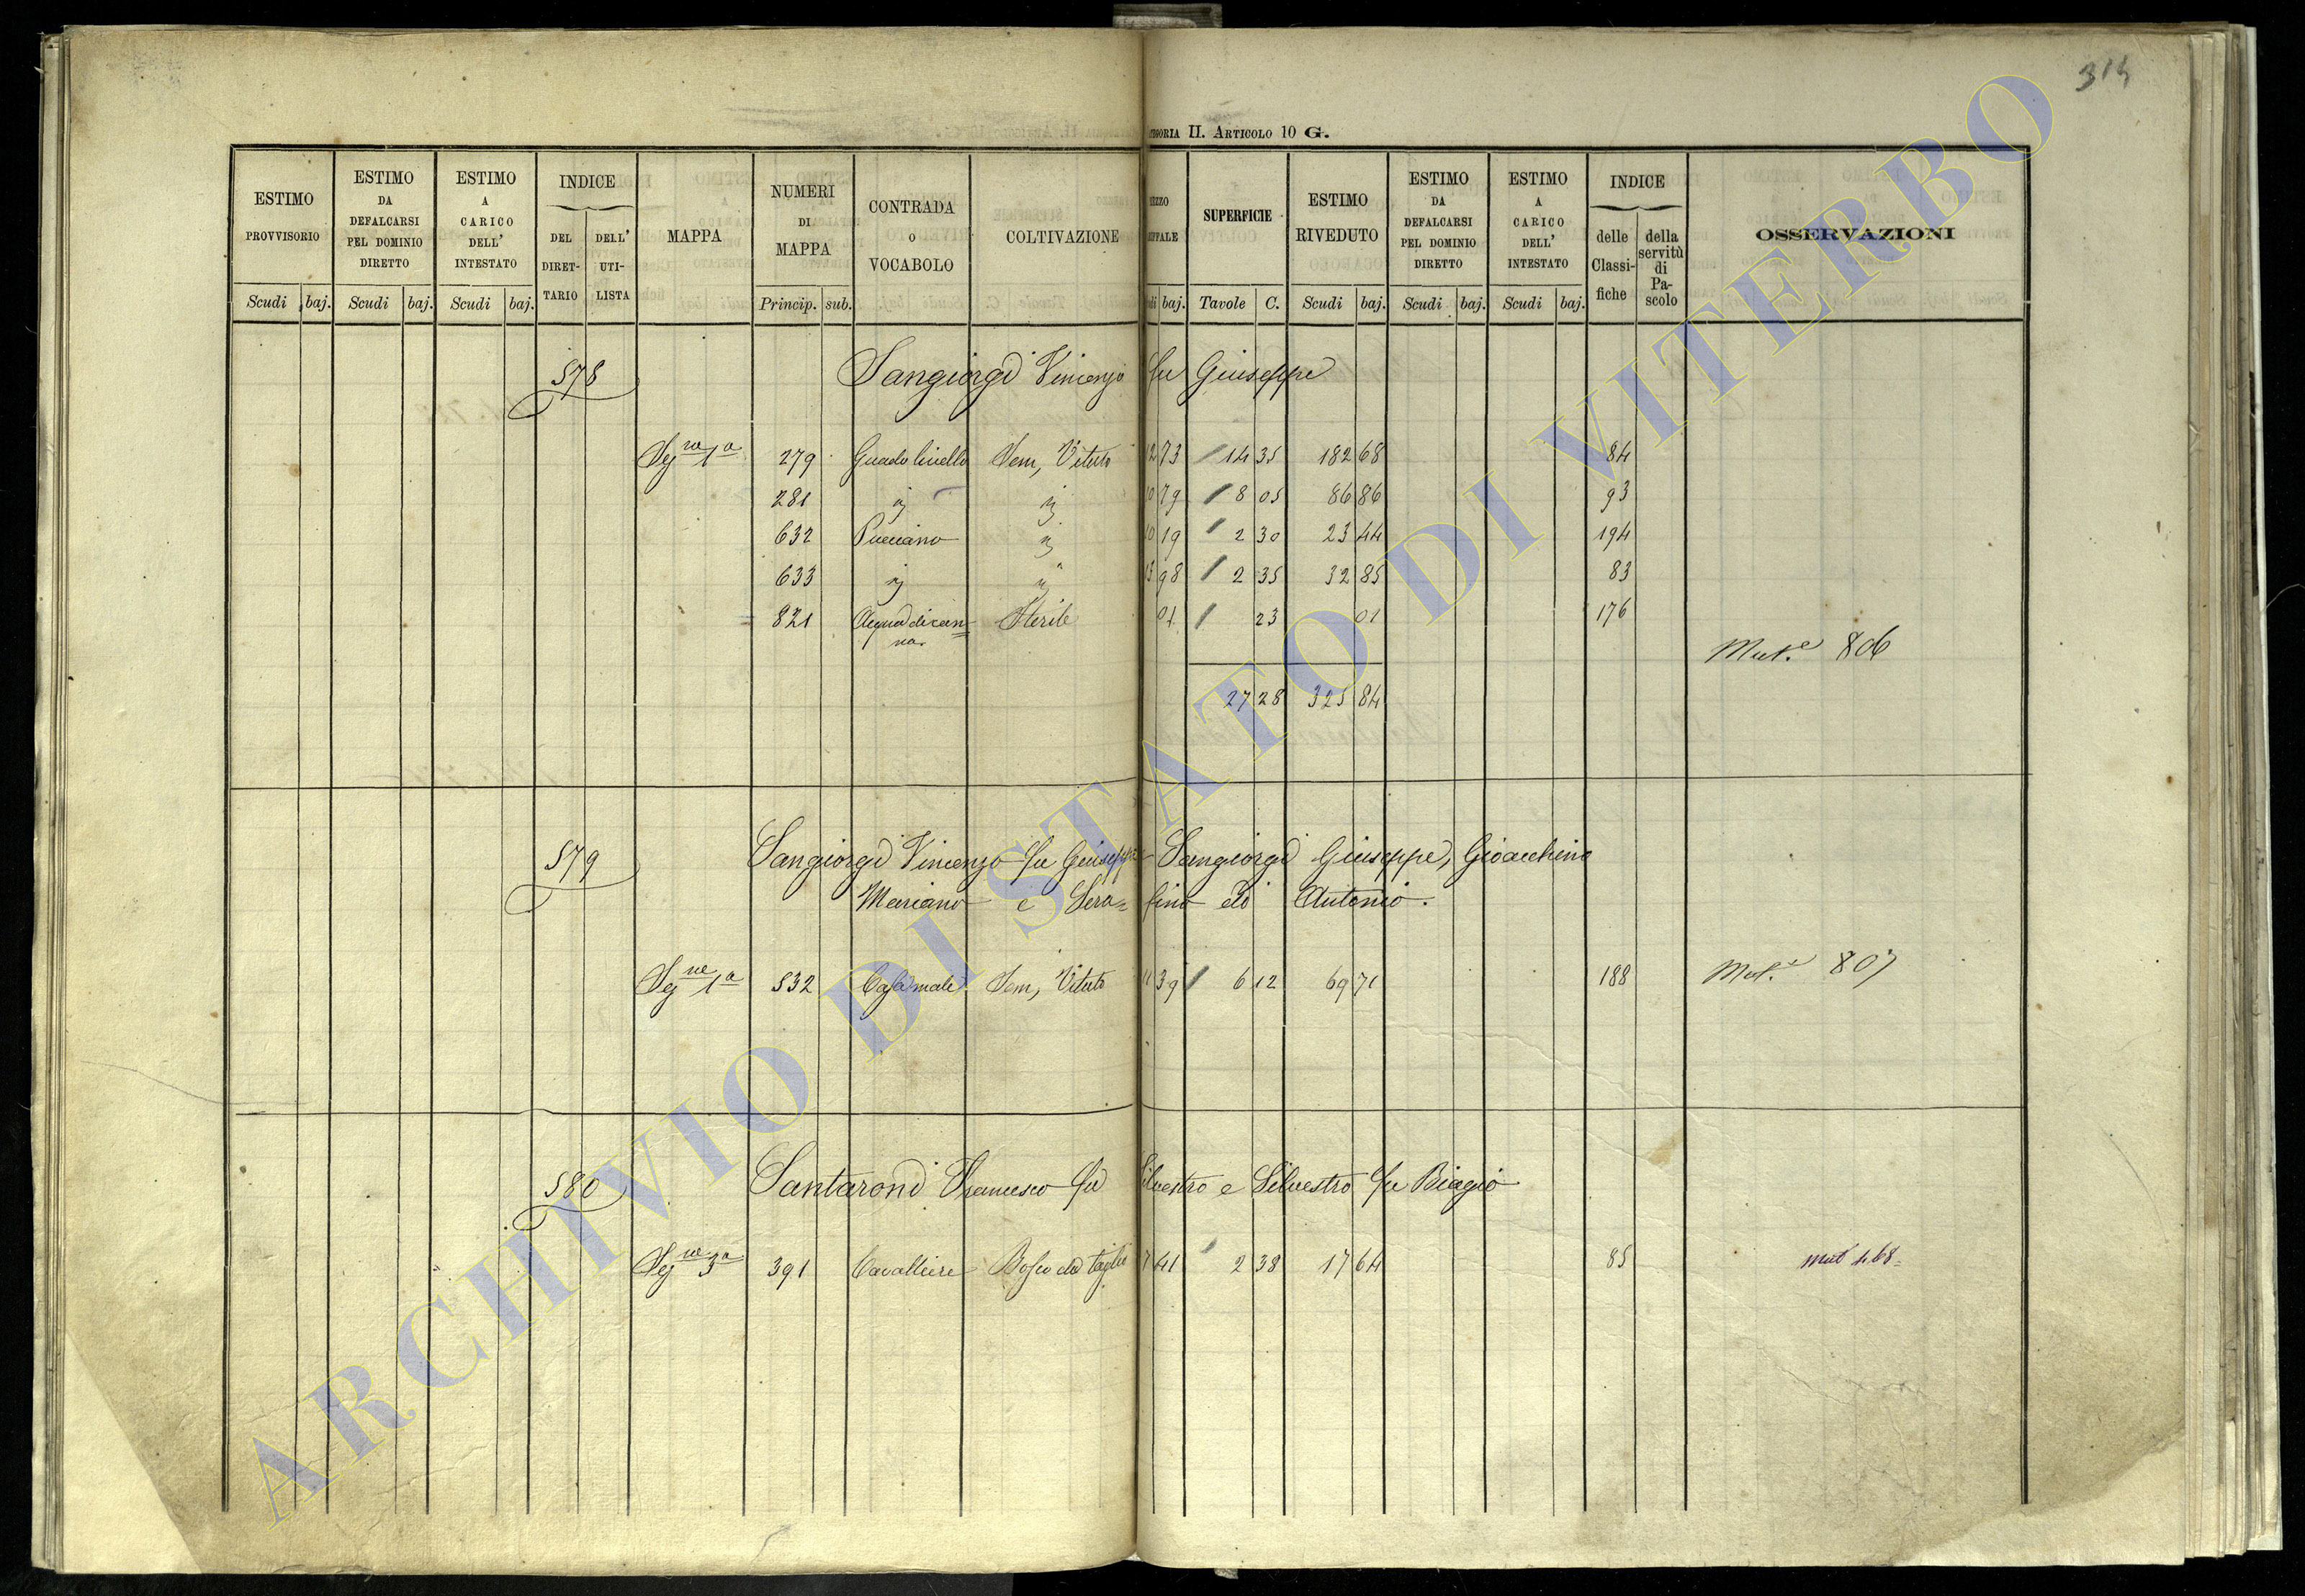 314
II. Articolo 10 G.
ESTIMO PROVVISORIO | ESTIMO DA DEFALCARSI PEL DOMINIO DIRETTO | ESTIMO A CARICO DELL' INTESTATO | INDICE DEL DIRETTARIO | DELL' UTILISTA | MAPPA | NUMERI DI MAPPA | CONTRADA O VOCABOLO | COLTIVAZIONE | SUPERFICIE | ESTIMO RIVEDUTO | ESTIMO DA DEFALCARSI PEL DOMINIO DIRETTO | ESTIMO A CARICO DELL' INTESTATO | INDICE delle Classifiche | della servitù di Pascolo | OSSERVAZIONI
Scudi | baj. | Scudi | baj. | Scudi | baj. | Princip. | sub. | baj. | Tavole | C. | Scudi | baj. | Scudi | baj. | Scudi | baj.
578 Sangiorgi Vincenzo fu Giuseppe
Segne 1a 279 Guadolinello Sem, Vitato 12 73 14 35 182 68 84
281 ij ij 10 79 8 05 86 86 93
632 Pucciano ij 10 19 2 30 23 44 194
633 ij ij 13 98 2 35 32 85 83
821 Acqua di can=
na Sterile 01 23 01 176
Mut.e 806
27 28 325 84
579 Sangiorgi Vincenzo fu Giuseppe Sangiorgi Giuseppe, Gioacchino
Mariano e Sera=fino di Antonio.
Segne 1a 532 Casamale Sem, Vitato 11 39 6 12 69 71 188 Mut.e 807
580 Santaroni Francesco fu Silvestro e Silvestro fu Biagio
Segne 3a 391 Cavalliere Bosco da taglio 7 41 2 38 17 64 85 Mut 468
ARCHIVIO DI STATO DI VITERBO